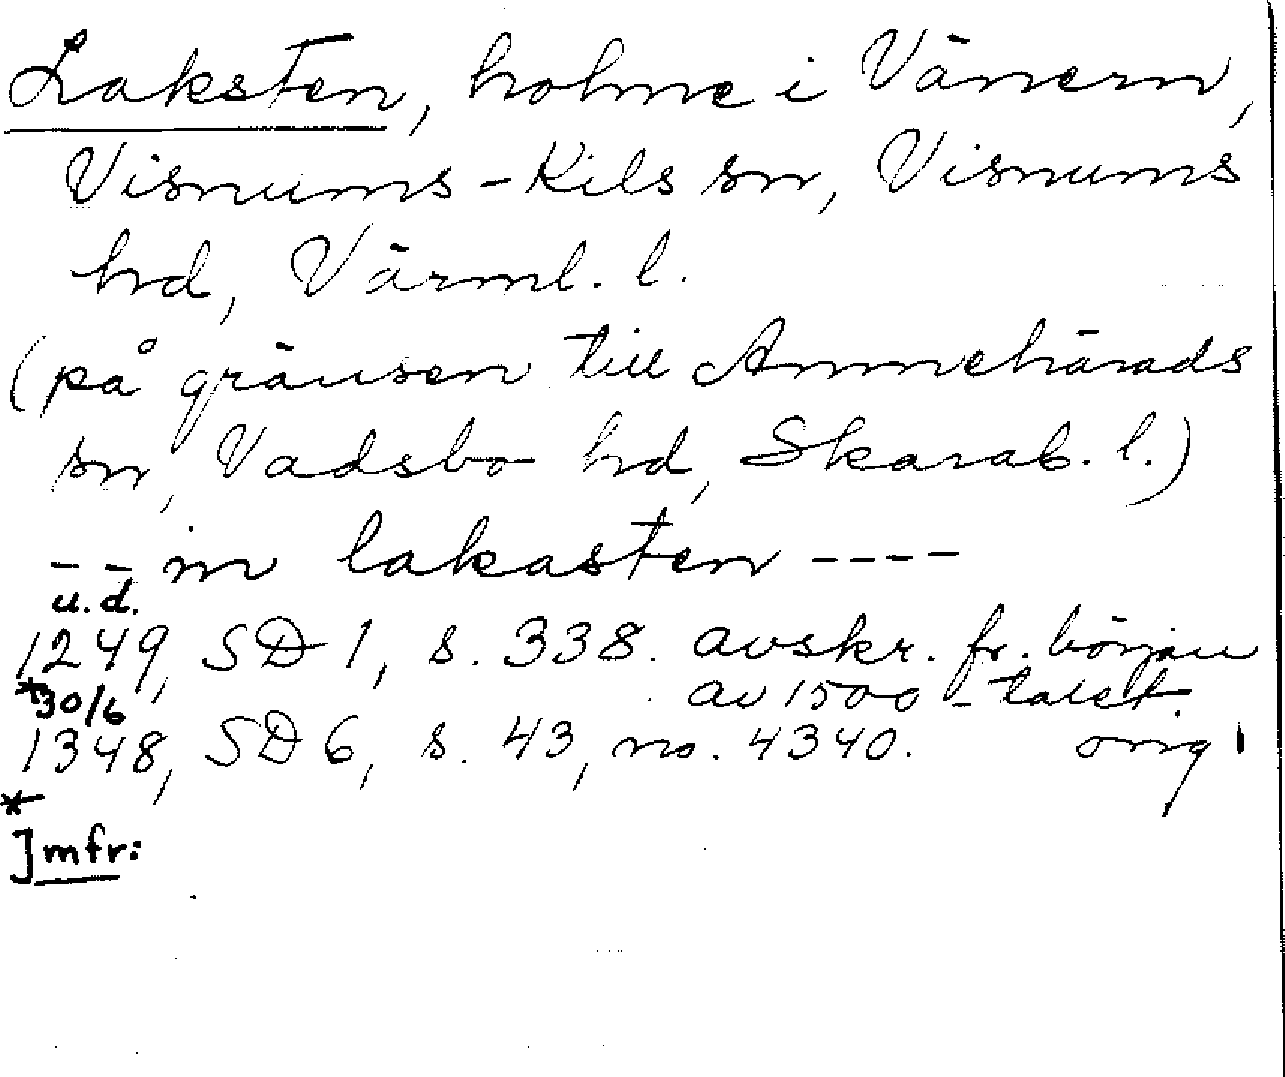 Laksten, holme i Vänern,
Visnums-Kils sn, Visnums
hd, Värml. l.
(på gränsen till Amnehärads
sn, Vadsbo hd, Skarab. l.)
-- in lakasten ----
u.d.
1249, SD 1, s. 338. avskr. fr. början
av 1500-talet.
*30/6
1348, SD 6, s. 43, no. 4340. orig
*
Jmfr: